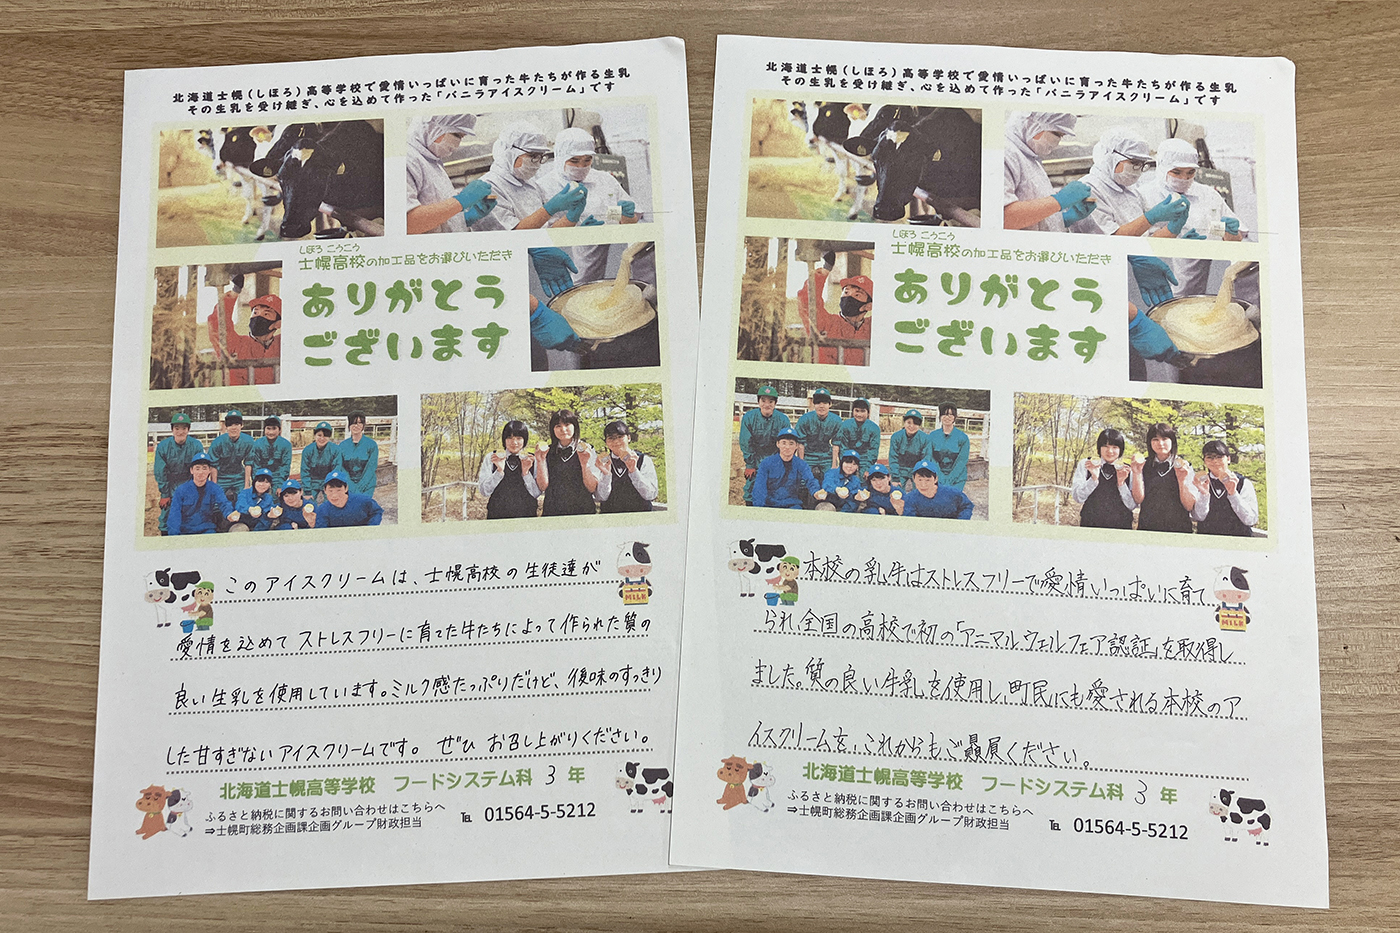 北海道士幌(しほろ)高等学校で愛情いっぱいに育った牛たちが作る生乳
その生乳を受け継ぎ、心を込めて作った「バニラアイスクリーム」です
しほろ こうこう
士幌高校の加工品をお選びいただき
ありがとう
ございます
このアイスクリームは、士幌高校の生徒達が
愛情を込めてストレスフリーに育てた牛たちによって作られた質の
良い生乳を使用しています。ミルク感たっぷりだけど、後味のすっきり
した甘すぎないアイスクリームです。ぜひお召し上がりください。
MILK
北海道士幌高等学校 フードシステム科 3 年
ふるさと納税に関するお問い合わせはこちらへ
⇒士幌町総務企画課企画グループ財政担当 ℡ 01564-5-5212
北海道士幌(しほろ)高等学校で愛情いっぱいに育った牛たちが作る生乳
その生乳を受け継ぎ、心を込めて作った「バニラアイスクリーム」です
しほろ こうこう
士幌高校の加工品をお選びいただき
ありがとう
ございます
本校の乳牛はストレスフリーで愛情いっぱいに育て
られ、全国の高校で初の「アニマルウェルフェア認証」を取得し
ました。質の良い牛乳を使用し、町民にも愛される本校のア
イスクリームを、これからもご贔屓ください。
MILK
北海道士幌高等学校 フードシステム科 3 年
ふるさと納税に関するお問い合わせはこちらへ
⇒士幌町総務企画課企画グループ財政担当 ℡ 01564-5-5212